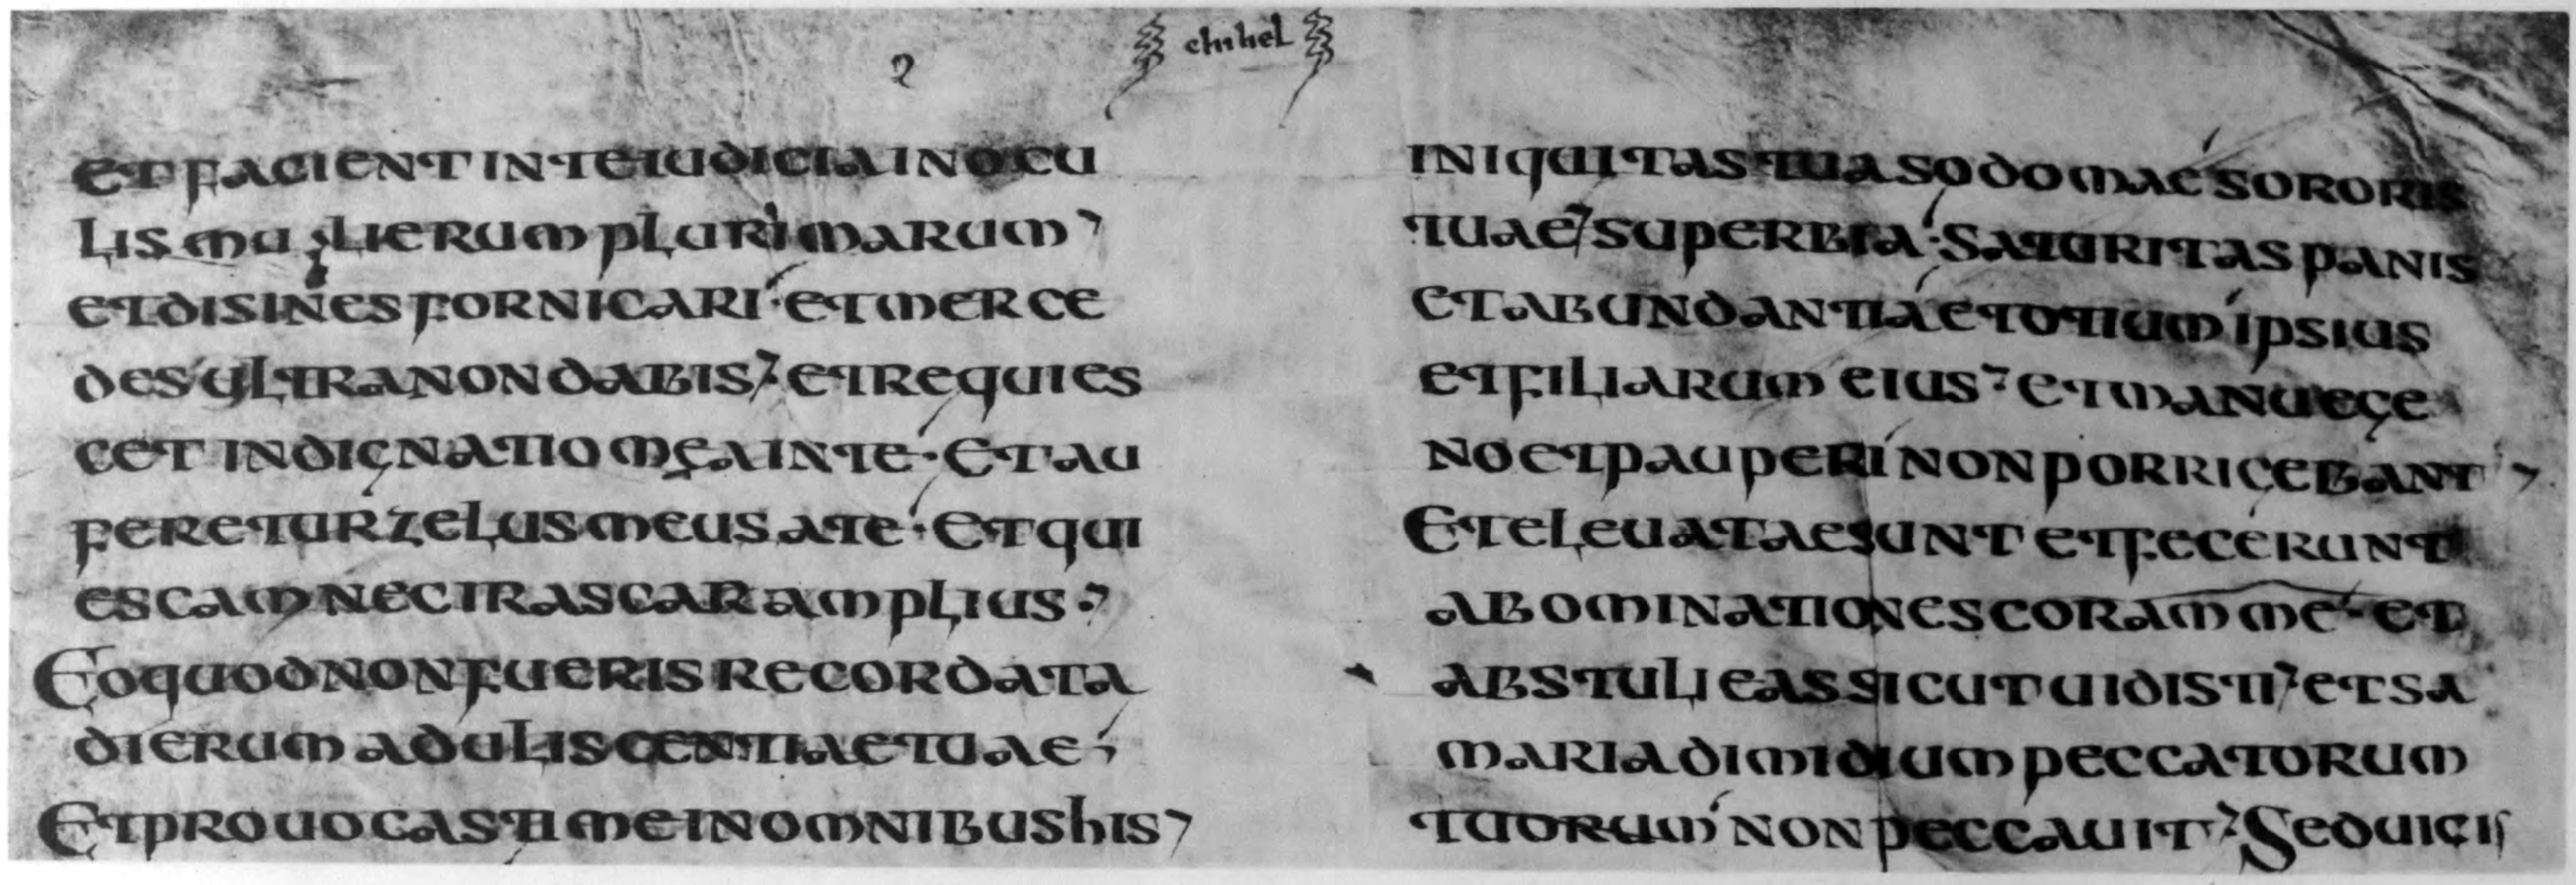 chihel
ET FACIENT IN TE IUDICIA IN OCU
LIS MULIERUM PLURIMARUM
ET DISINES FORNICARI· ET MERCE
DES ULTRA NON DABIS ET REQUIES
CET INDIGNATIO MEA IN TE· ET AU
FERETUR ZELUS MEUS A TE· ET QUI
ESCAM NEC IRASCAR AMPLIUS
EO QUOD NON FUERIS RECORDATA
DIERUM ADULISCENTIAE TUAE
ET PROUOCASTI ME IN OMNIBUS hIS
INIQUITAS TUA SODOMAE SORORIS
TUAE SUPERBIA· SATURITAS PANIS
ET ABUNDANTIA ET OTIUM IPSIUS
ET FILIARUM EIUS ET MANU EGE
NO ET PAUPERI NON PORRIGEBANT
ET ELEUATAE SUNT ET FECERUNT
ABOMINATIONES CORAM ME· ET
ABSTULI EAS SICUT UIDISTI ET SA
MARIA DIMIDIUM PECCATORUM
TUORUM NON PECCAUIT SED UICIS